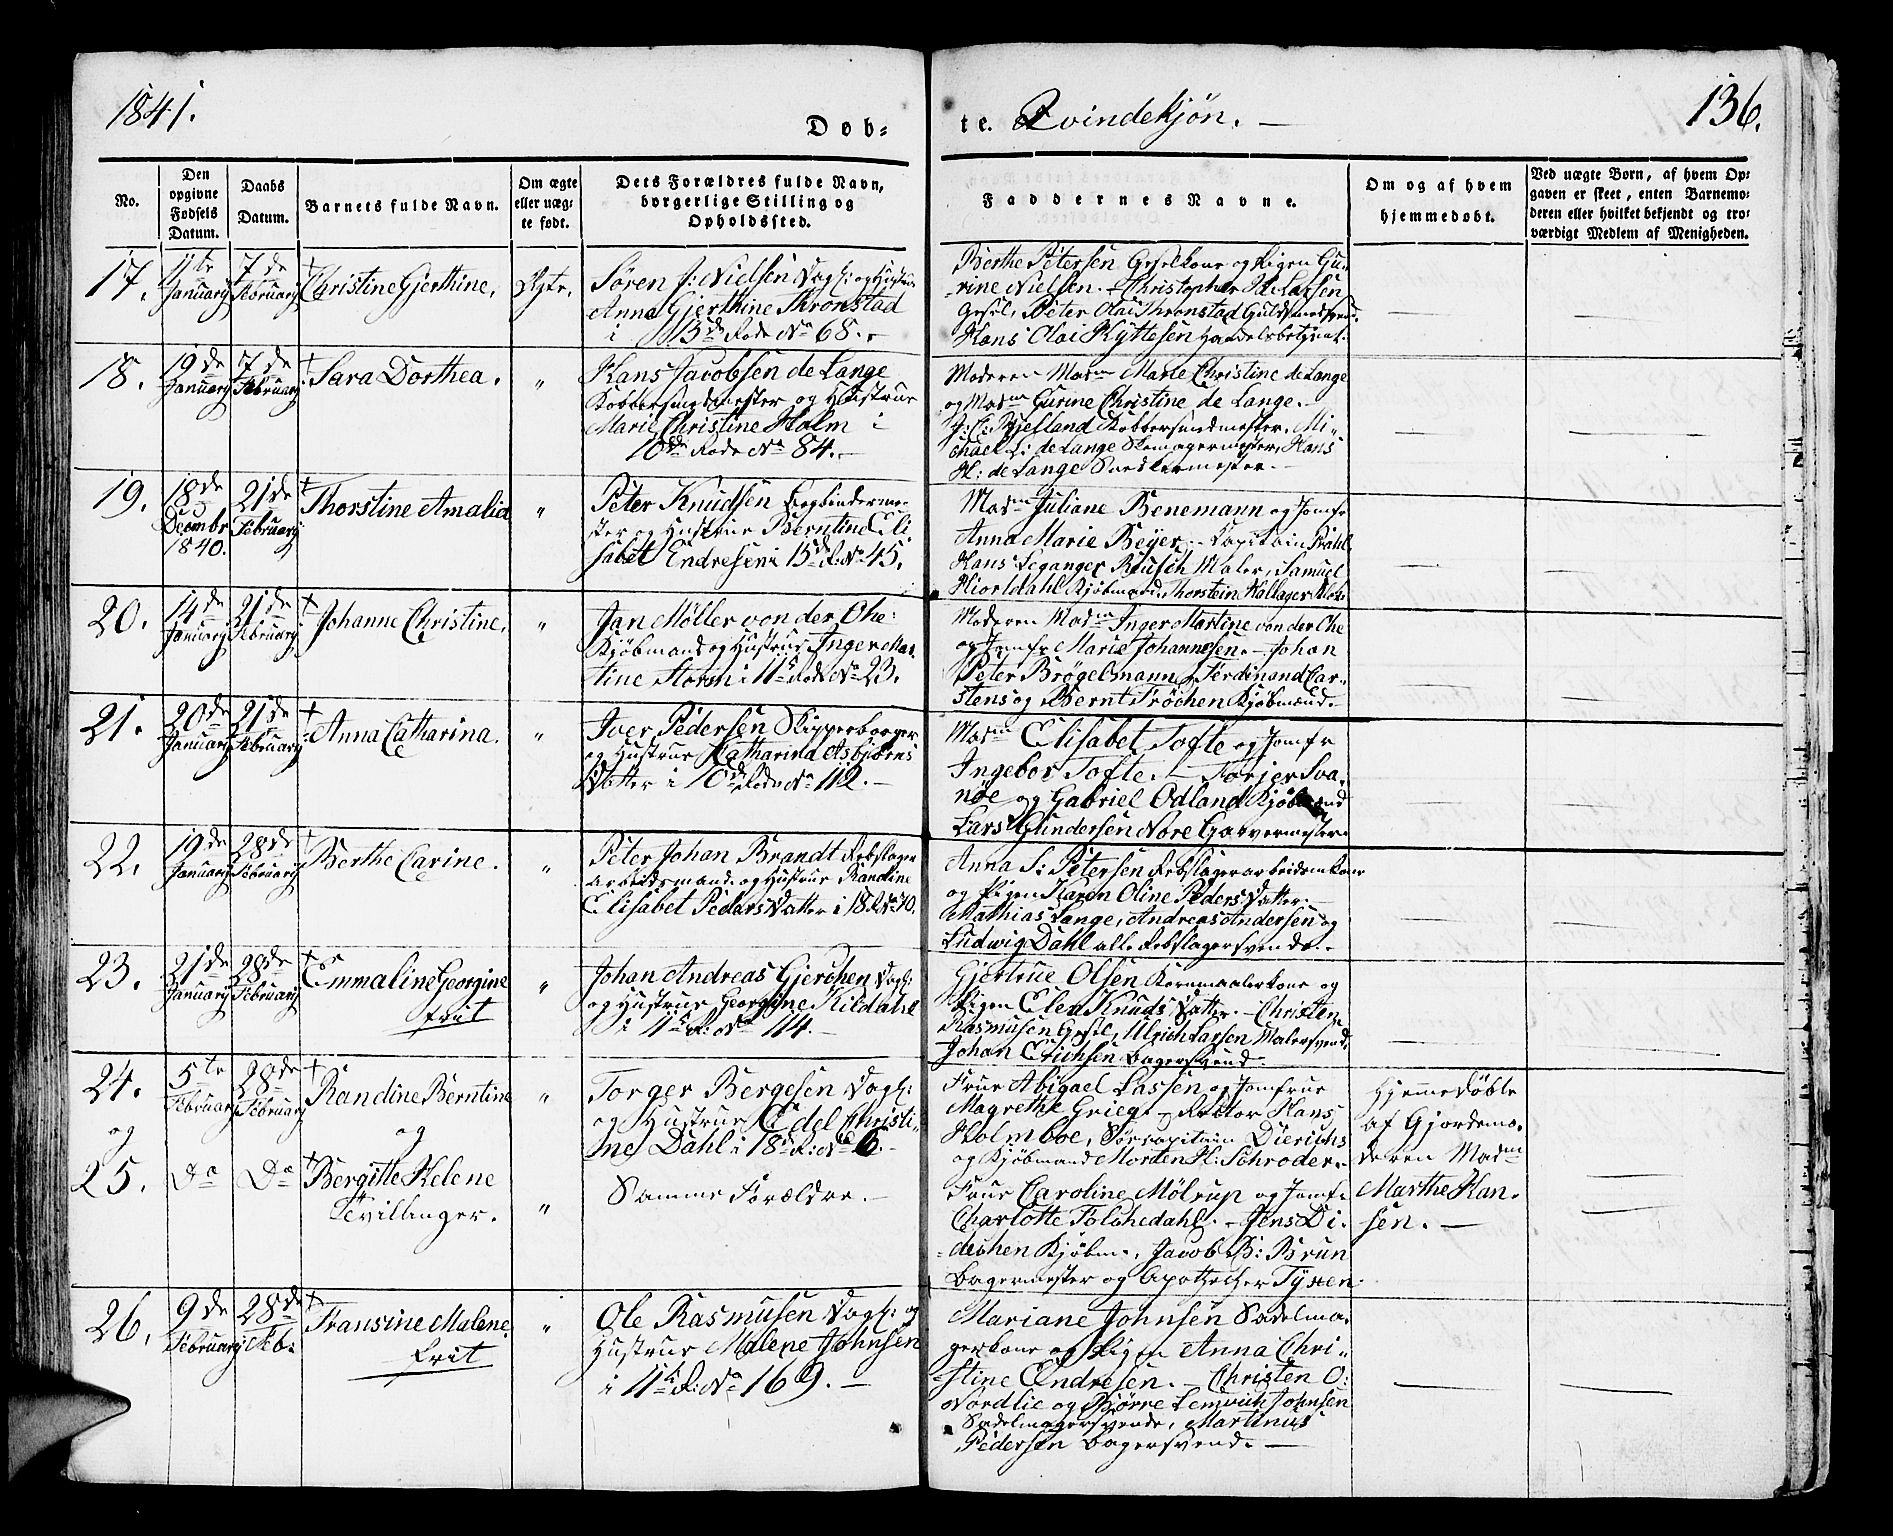 1841.
Døb-
te. Qvindekjøn. —
136.
No.
Den opgivne Fødsels Datum.
Daabs Datum.
Barnets fulde Navn.
Om ægte eller uægte født.
Dets Forældres fulde Navn, borgerlige Stilling og Opholdssted.
Faddernes Navne.
Om og af hvem hjemmedøbt.
Ved uægte Børn, af hvem Opgaven er skeet, enten Barnemoderen eller hvilket bekjendt og troværdigt Medlem af Menigheden.
17.
11te January
7de February
Christine Gjerthine.
Ægte.
Søren J: Nielsen Dagl: og Hustrue
Anne Gjerthine Thronstad
i 13de Rode No 68.
Berthe Petersen Geselkone og Pigen Gu-
rine Nielsen. Christopher H. Larsen
Gesel, Peter Olai Thronstad Guldsmedsvend,
Hans Olai Kyttesen Handelsbetjent.
18.
19de January
7de February
Sara Dorthea.
"
Hans Jacobsen de Lange
Kobbersmedmester og Hustrue
Marie Christine Holm i
10de Rode No 84.
Moderen Madm Marie Christine de Lange
og Madm Gurine Christine de Lange.
J: C: Kjelland Kobbersmedmester, Mi-
chael L: de Lange Skomagermester, Hans
H: de Lange Sadlermester.
19.
18de Decembr 1840.
21de February
Thorstine Amalia
"
Peter Knudsen Bogbinderme-
ster og Hustrue Berntine Eli
sabet Endresen i 13de R. No 45.
Madm Juliane Benemann og Jomfr
Anna Marie Beyer. Capitain Prahl
Hans Leganger Reusch Maler, Samuel
Hiortdahl Kjøbmænd. Thorstein Hallager
20.
14de January
21de February
Johanne Christine.
"
Jan Møller von der Ohe
Kjøbmand og Hustrue Inger Mar
tine Storm i 11te Rode No 23.
Moderen Madm Inger Martine von der Ohe
og Jomfr Marie Johannesen. Johan
Peter Brøgelmann, Ferdinand Car-
stens og Bernt Trøchen Kjøbmænd.
21.
20de January
21de February
Anna Catharina.
"
Iver Pedersen Skipperborger
og Hustrue Catharina Asbjørns
Datter i 10de Rode No 112.
Madm Elisabet Tofte og Jomfr
Ingebor Tofte. Torjer Sva-
nøe og Gabriel Odland Kjøbmænd
Lars Gundersen Nore Garvermester.
22.
19de January
28de February
Berthe Carine.
"
Peter Johan Brandt Rebslager
Arbeidsmand og Hustrue Randine
Elisabet Peders Datter i 18 R. No 70.
Anna S: Petersen Rebslagerarbeidsm. kone
og Pigen Karen Oline Peders Datter.
Mathias Lange, Andreas Andersen og
Ludwig Dahl alle Rebslagersvende.
23.
21de January
28de February
Emmaline Georgine
frit
"
Johan Andreas Gjerchen Dagl:
og Hustrue Georgine Kildahl
i 11te R: No 114.
Gjertrue Olsen Kornmaalerkone og
Pigen Elen Knuds Datter. Christen
Rasmusen Gesel, Ulrich Larsen Malersvend,
Johan Erichsen Bagersvend.
24.
5te February
28de February
Randine Berntine
"
Torger Bergesen Dagl:
og Hustrue Edel Christi-
ne Dahl i 18de R: No 6.
Frue Abigael Lassen og Jomfrue
Magrethe Grieg. Rector Hans
Holmboe, Søecapitain Dierichs
og Kjøbmand Morten H: Schrøder.
Hjemmedøbte
af Gjordemo-
deren Madm
Marthe Han-
sen. —
og
og
25.
Do
Do
Bergitte Helene
Tvillinger.
"
Samme Forældre.
Frue Caroline Mølrup og Jomfr
Charlotte Folchedahl. Jens Di-
dechen Kjøbm., Jacob B: Brun
Bagermester og Apotheker Tyxen.
26.
9de February
28de Feb.
Fransine Malene
frit
"
Ole Rasmusen Dagl: og
Hustrue Malene Johnsen
i 11te R: No 169.
Mariane Johnsen Sadelma-
gerkone og Pigen Anna Chri-
stine Endresen. Christen O:
Nordlie og Børre Lemvich Johnsen
Sadelmagersvende, Martinus
Pedersen Bagersvend. —